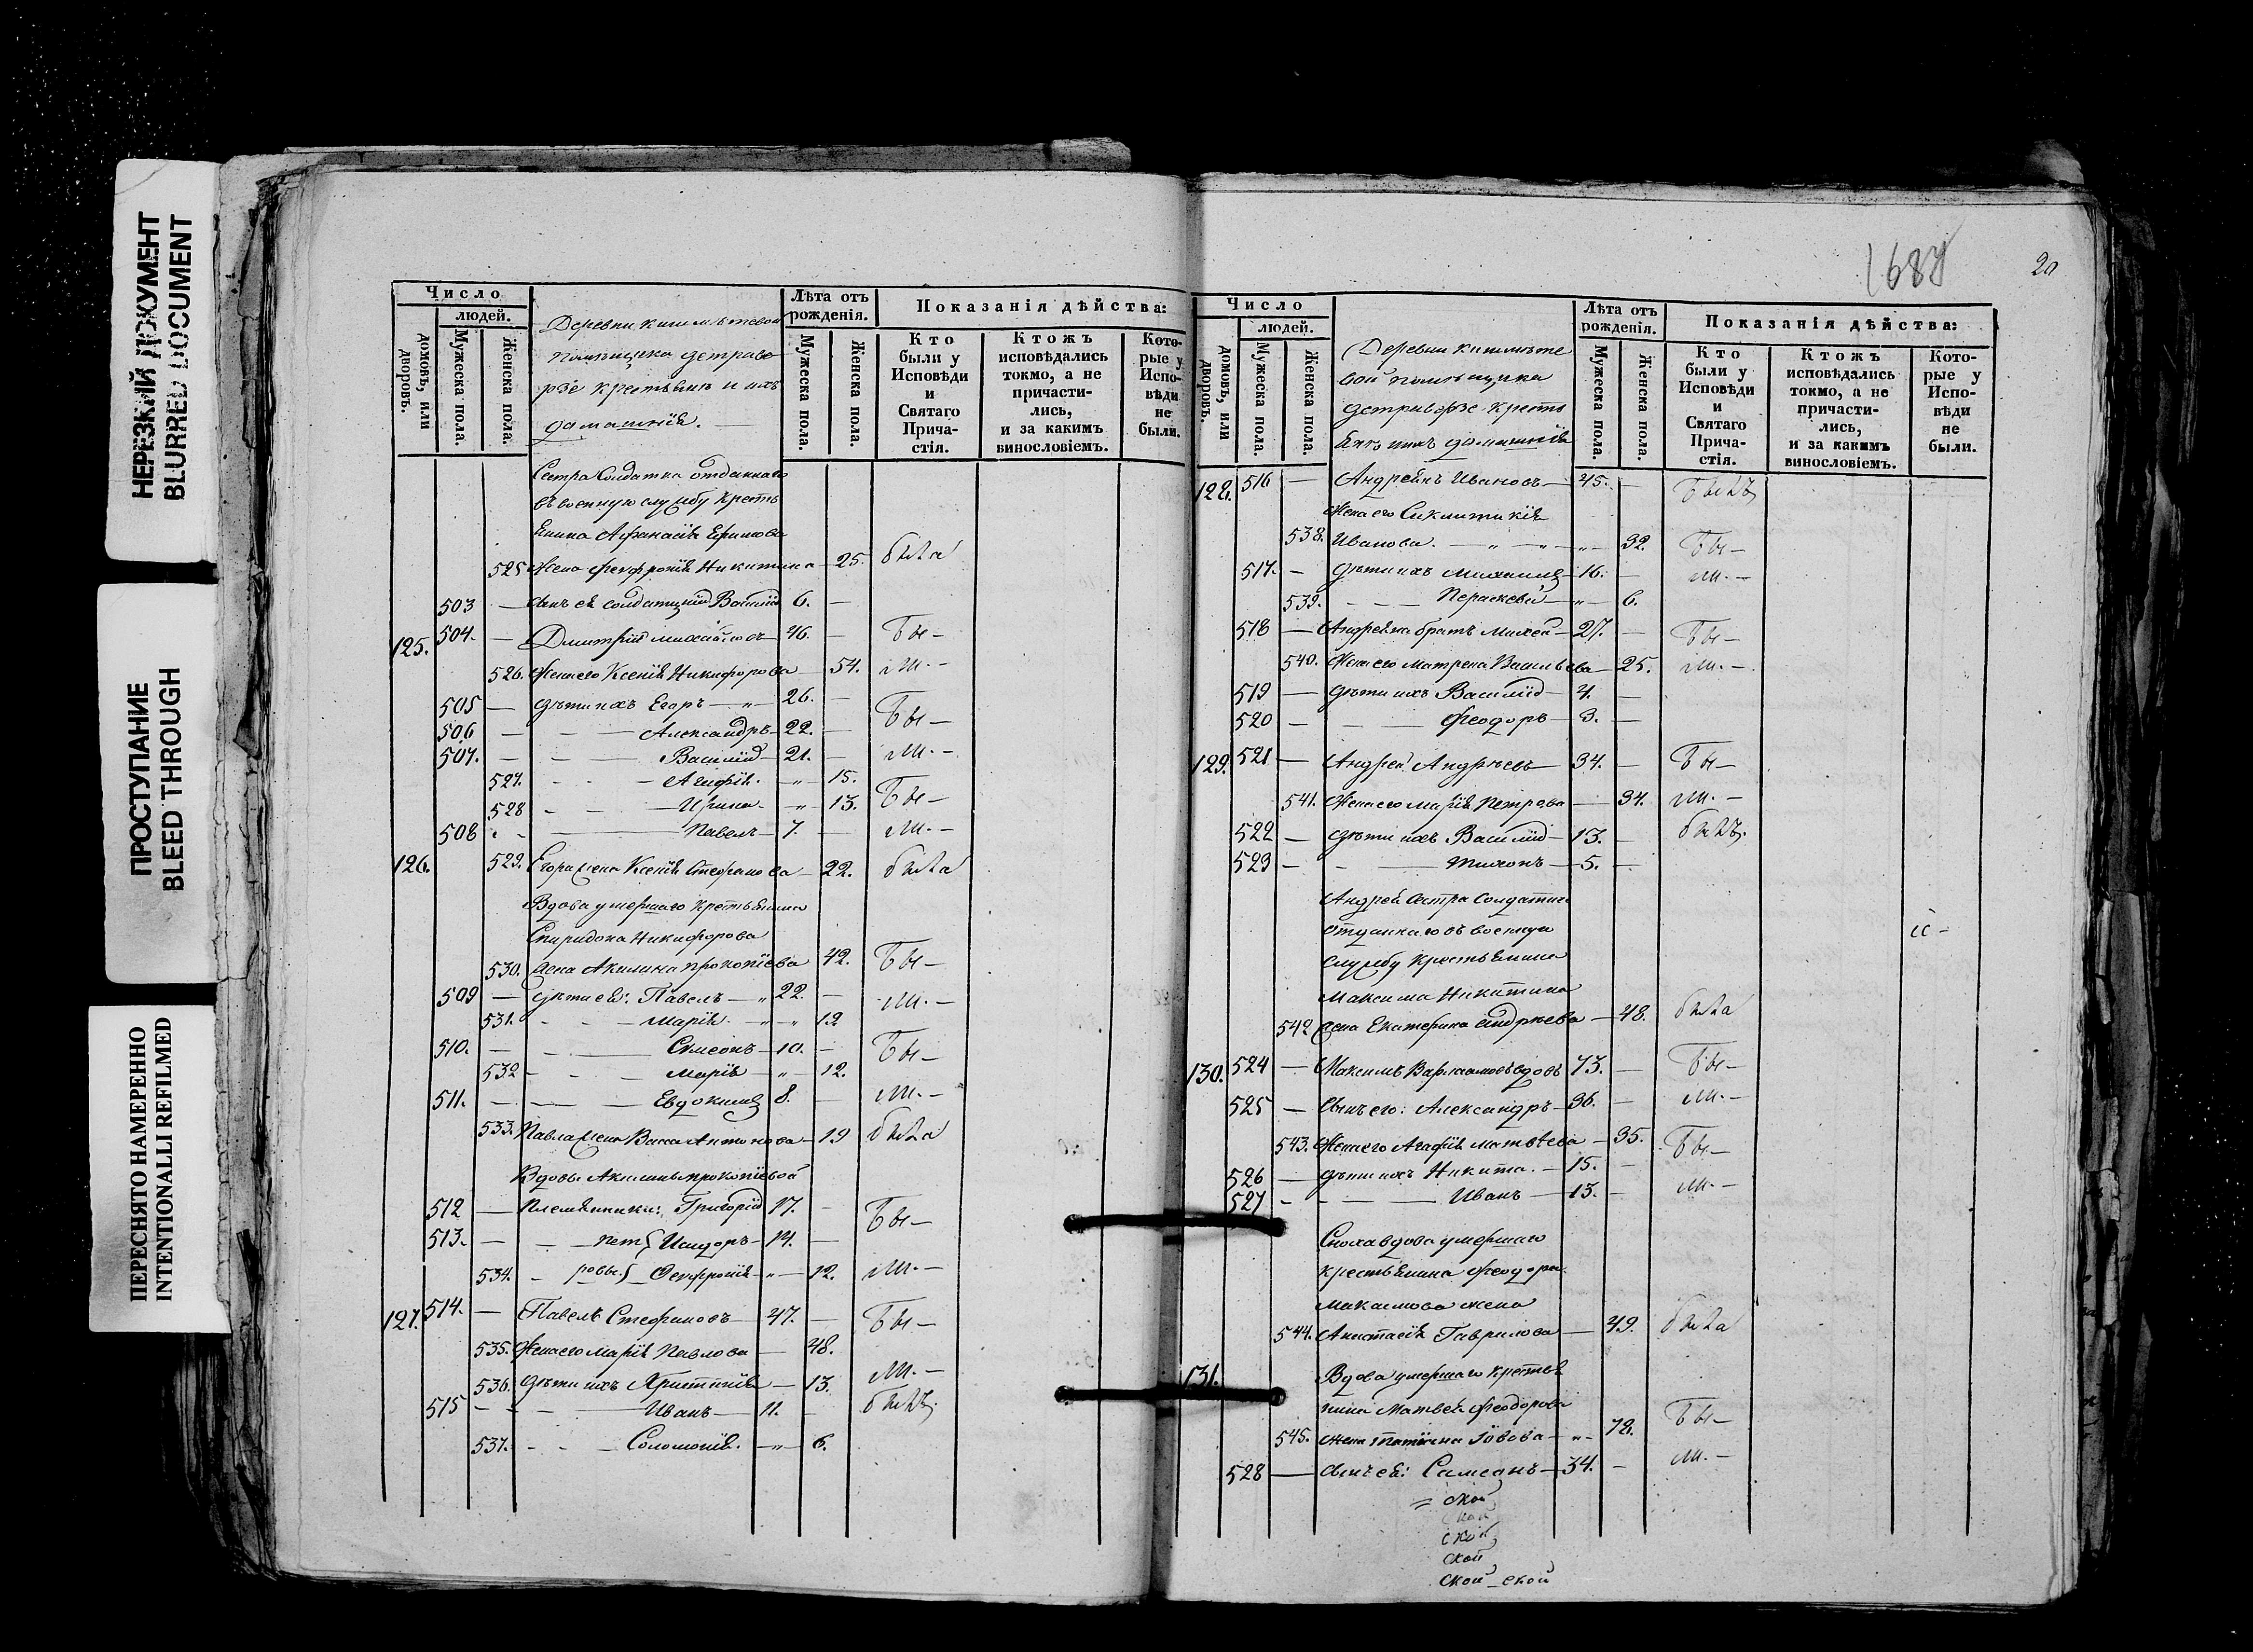 НЕРЕЗКИЙ ДОКУМЕНТ
BLURRED DOCUMENT
ПРОСТУПАНИЕ
BLEED THROUGH
ПЕРЕСНЯТО НАМЕРЕННО
INTENTIONALLI REFILMED
Число
людей.
домовъ, или дворовъ.
Мужеска пола.
Женска пола.
Деревни
помѣщика
крестьяне и ихъ
домашнія.
Лѣта отъ рожденія.
Мужеска пола.
Женска пола.
Показанія дѣйства:
Кто были у Исповѣди и Святаго Прича-стія.
Ктожъ исповѣдались токмо, а не причасти-лись, и за какимъ винословіемъ.
Кото-рые у Испо-вѣди не были.
Сестра солдатка отданнаго
въ военную службу кресть
янина Афанасія Ефимова
525 жена Февронія Никитина 25. была
503 — сынъ ея солдатскій Василій 6. —
125. 504. — Дмитрій Михайловъ 46. — Бы —
526. Жена его Ксенія Никифорова — 54. ли. —
505 — дѣти ихъ Егоръ — „ — 26. — Бы —
506 — — — Александръ — 22. —
507. — — — Василій — 21. — ли. —
527. — — — Агафія. — „ — 15.
528 — — — Ирина. — „ — 13. Бы —
508 — — — Павелъ — 7. — ли. —
126. 529. Егора жена Ксенія Стефанова — 22. была
Вдова умершаго крестьянина
Спиридона Никифорова
530. жена Акилина Прокопіева 42. Бы —
509 — дѣти ея: Павелъ — „ 22. — ли. —
531. — — — Марія. — „ — 19
510. — — — Симеонъ — 10. — Бы —
532 — — — Марія — „ — 12.
511. — — — Евдокимъ 8. — ли. —
533. Павла жена Васса Антонова — 19 была
Вдовы Акилины Прокопіевой
512 — племянники: Григорій 17. —
513. — — Пет{ Исидоръ — 14. — Бы —
534. — ровы.} Февронія — „ — 12. ли. —
127. 514. — Павелъ Стефановъ — 47. — Бы —
535. Жена его Марія Павлова — 48.
536. Дѣти ихъ Христинія — 13. ли. —
515 — — — Иванъ — 11. — былъ.
537. — — — Соломонія. — „ — 6.
1687
20
Число
людей.
домовъ, или дворовъ.
Мужеска пола.
Женска пола.
Деревни
вой помѣщика
кресть
яне и ихъ домашнія
Лѣта отъ рожденія.
Мужеска пола.
Женска пола.
Показанія дѣйства:
Кто были у Исповѣди и Святаго Прича-стія.
Ктожъ исповѣдались токмо, а не причасти-лись, и за какимъ винословіемъ.
Кото-рые у Испо-вѣди не были.
128. 516 — Андрей Ивановъ — 45. — Былъ
Жена его Синклитикія
538. Иванова. — „ — „ — „ — 32. Бы —
517. — дѣти ихъ Михаилъ — 16. — ли. —
539. — — — Параскева — „ — 6.
518 — Андреяна братъ Михей — 27. — Бы —
540. Жена его Матрена Васильева — 25. ли. —
519 — дѣти ихъ Василій — 4. —
520 — — — Феодоръ — 3. —
129. 521 — Андрей Андреевъ — 34. — Бы —
541. Жена его Марія Петрова — 34. ли. —
522 — дѣти ихъ Василій — 13. — былъ.
523 — — — Тихонъ — 5. —
Андрей сестра солдатка
отданнаго въ военную
службу крестьянина
Максима Никитина
542 жена Екатерина Андреева — 48. была
130. 524 — Максимъ Варлаамовъ вдовъ 73. — Бы —
525 — Сынъ его: Александръ — 36. — ли. —
543. Жена его Агафія Матвѣева — 35. Бы —
526 — дѣти ихъ Никита. — 15. —
527 — — — Иванъ — 13. — ли. —
Сноха вдова умершаго
крестьянина Феодора
Максимова жена
544. Анастасія Гаврилова — 49. была
131. Вдова умершаго кресть
янина Матвея Феодорова
545. жена Татіана Іовова — „ — 78. Бы —
528 — сынъ ея: Самсонъ — 34. — ли. —
= ской
ской
ской
ской
ской — ской